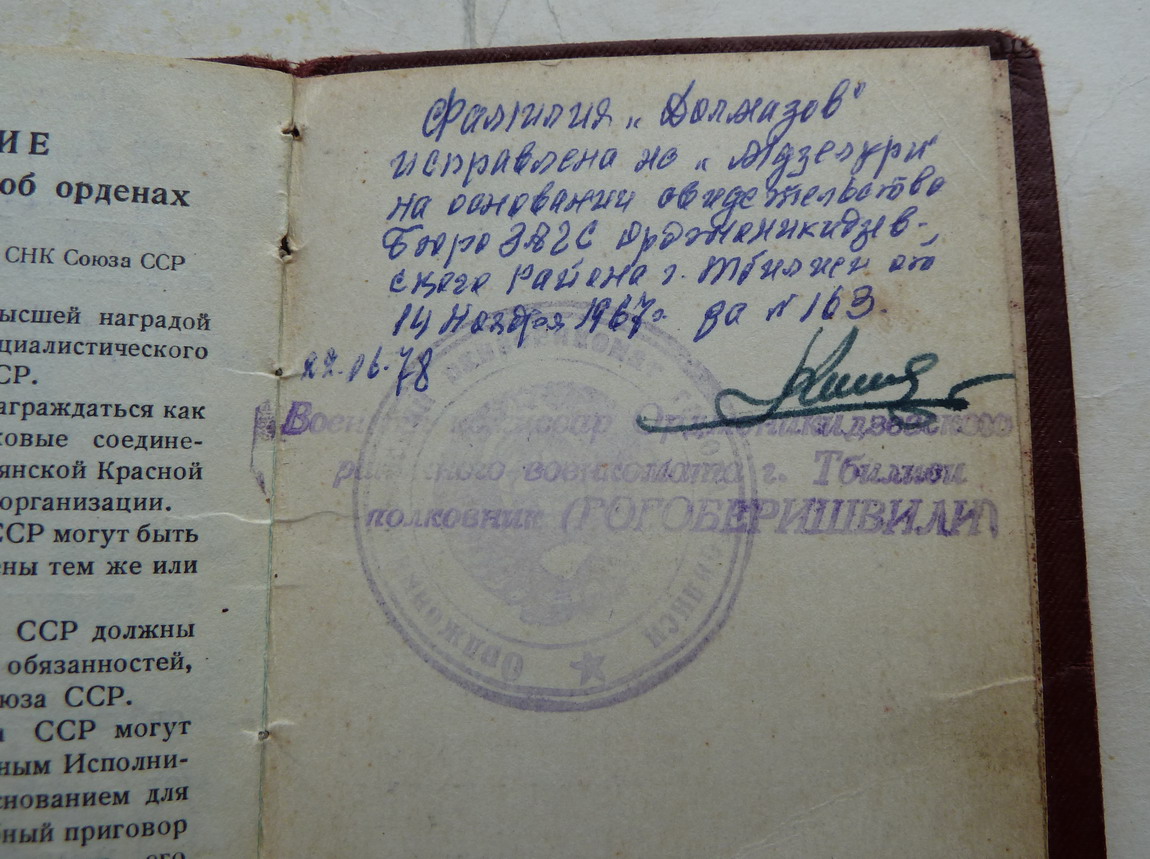 ИЕ
об орденах
СНК Союза ССР
ысшей наградой
циалистического
СР.
аграждаться как
ковые соедине-
янской Красной
организации.
ССР могут быть
ены тем же или
ССР должны
обязанностей,
юза ССР.
ССР могут
ным Исполни-
снованием для
ный приговор
его
Фамилия „Долмазов"
исправлена на „Мдзелури"
на основании свидетельства
Бюро ЗАГС Орджоникидзев-
ского района г. Тбилиси от
14 Ноября 1967г. за № 163
Военный комиссар Орджоникидзевского
районного военкомата г. Тбилиси
полковник (ГОГОБЕРИШВИЛИ)